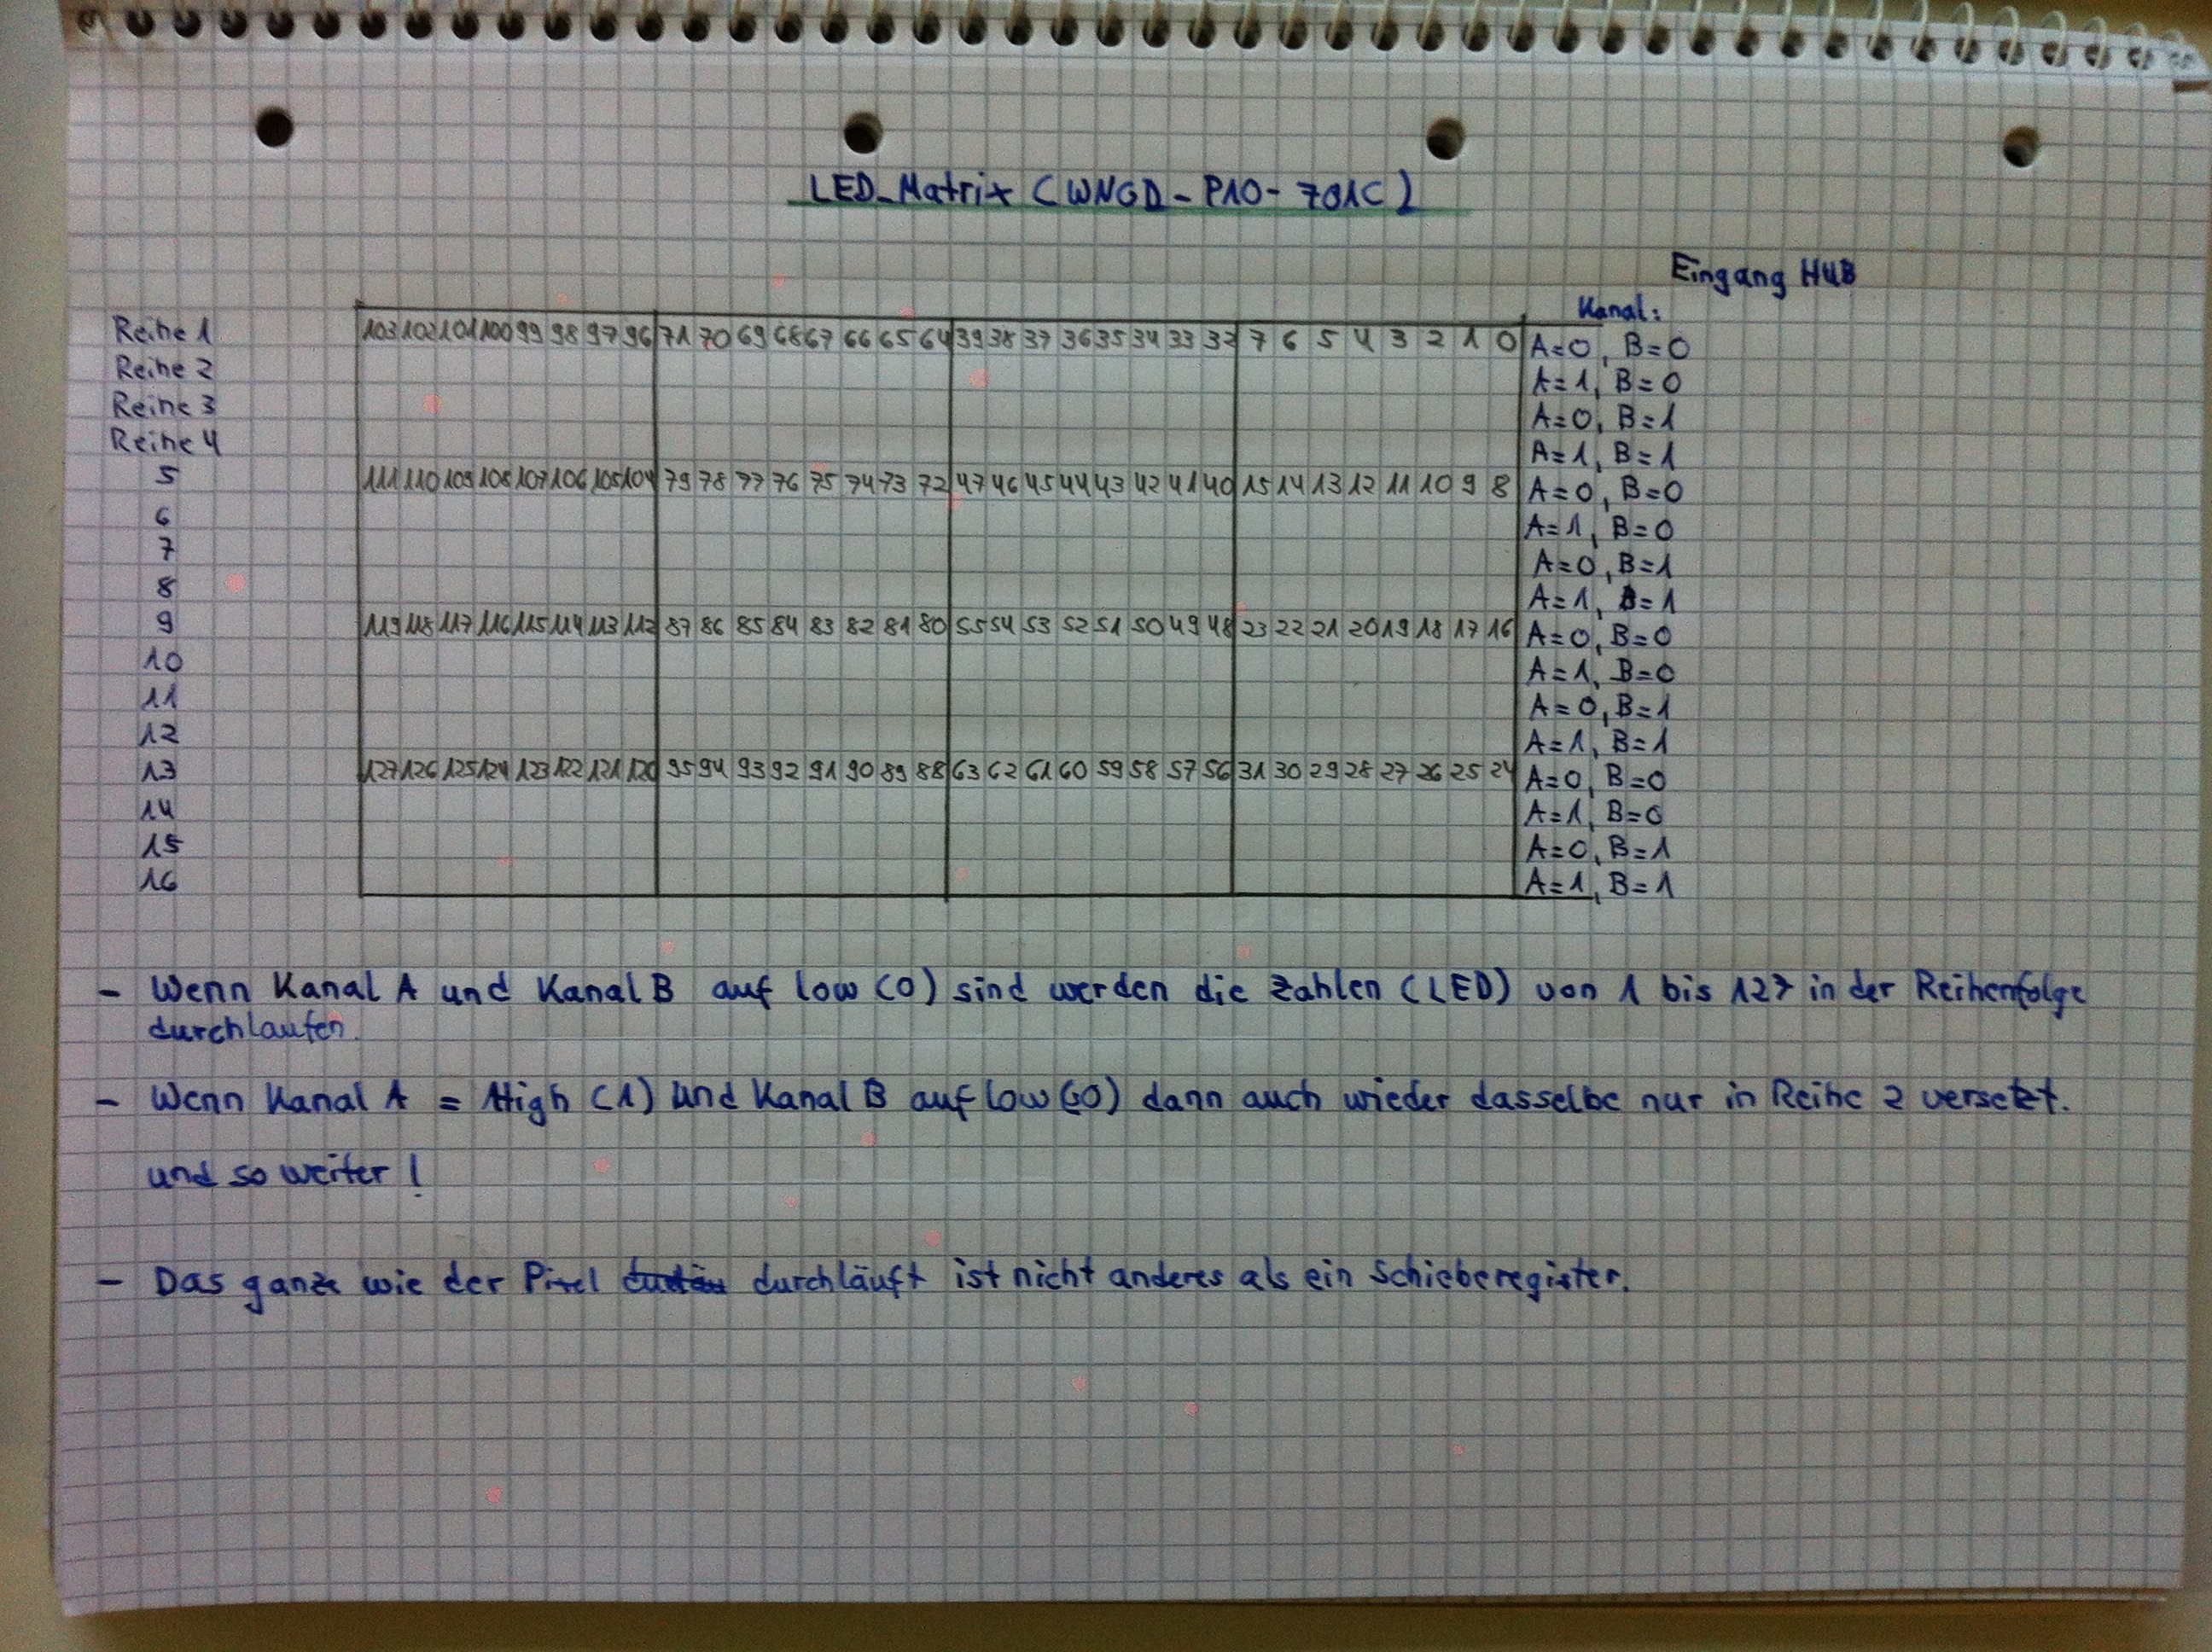 LED-Matrix (WNGD-P10-701C)
Eingang HUB
Kanal:
Reihe 1 103 102 101 100 99 98 97 96 71 70 69 68 67 66 65 64 39 38 37 36 35 34 33 32 7 6 5 4 3 2 1 0 A=0, B=0
Reihe 2 A=1, B=0
Reihe 3 A=0, B=1
Reihe 4 A=1, B=1
5 111 110 109 108 107 106 105 104 79 78 77 76 75 74 73 72 47 46 45 44 43 42 41 40 15 14 13 12 11 10 9 8 A=0, B=0
6 A=1, B=0
7 A=0, B=1
8 A=1, B=1
9 119 118 117 116 115 114 113 112 87 86 85 84 83 82 81 80 55 54 53 52 51 50 49 48 23 22 21 20 19 18 17 16 A=0, B=0
10 A=1, B=0
11 A=0, B=1
12 A=1, B=1
13 127 126 125 124 123 122 121 120 95 94 93 92 91 90 89 88 63 62 61 60 59 58 57 56 31 30 29 28 27 26 25 24 A=0, B=0
14 A=1, B=0
15 A=0, B=1
16 A=1, B=1
- Wenn Kanal A und Kanal B auf low (0) sind werden die Zahlen (LED) von 1 bis 127 in der Reihenfolge
durchlaufen.
- Wenn Kanal A = High (1) und Kanal B auf low (0) dann auch wieder dasselbe nur in Reihe 2 versetzt.
und so weiter!
- Das ganze wie der Pixel durchläuft ist nicht anderes als ein Schieberegister.